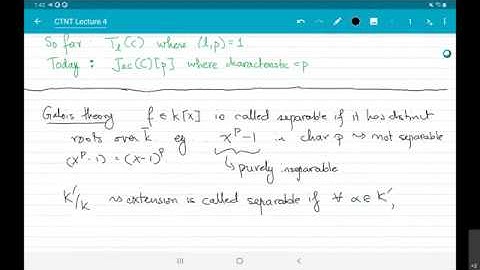 1:42
CTNT Lecture 4
So far : Tℓ(C) where (l,p)=1
Today : Jac(C)[p] where characteristic = p
Galois theory f ∈ k[x] is called separable if it has distinct
roots over k̄ eg x^p-1 in char p ⇝ not separable
(x^p-1) = (x-1)^p
↳ purely inseparable
K'/K ⇝ extension is called separable if ∀ α ∈ K',